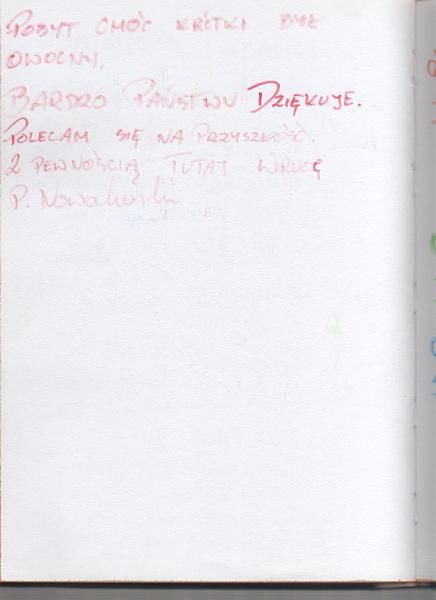 POBYT CHOĆ KRÓTKI BYŁ
OWOCNY.
BARDZO PAŃSTWU DZIĘKUJĘ.
POLECAM SIĘ NA PRZYSZŁOŚĆ.
Z PEWNOŚCIĄ TUTAJ WRÓCĘ
P. Nowakowski